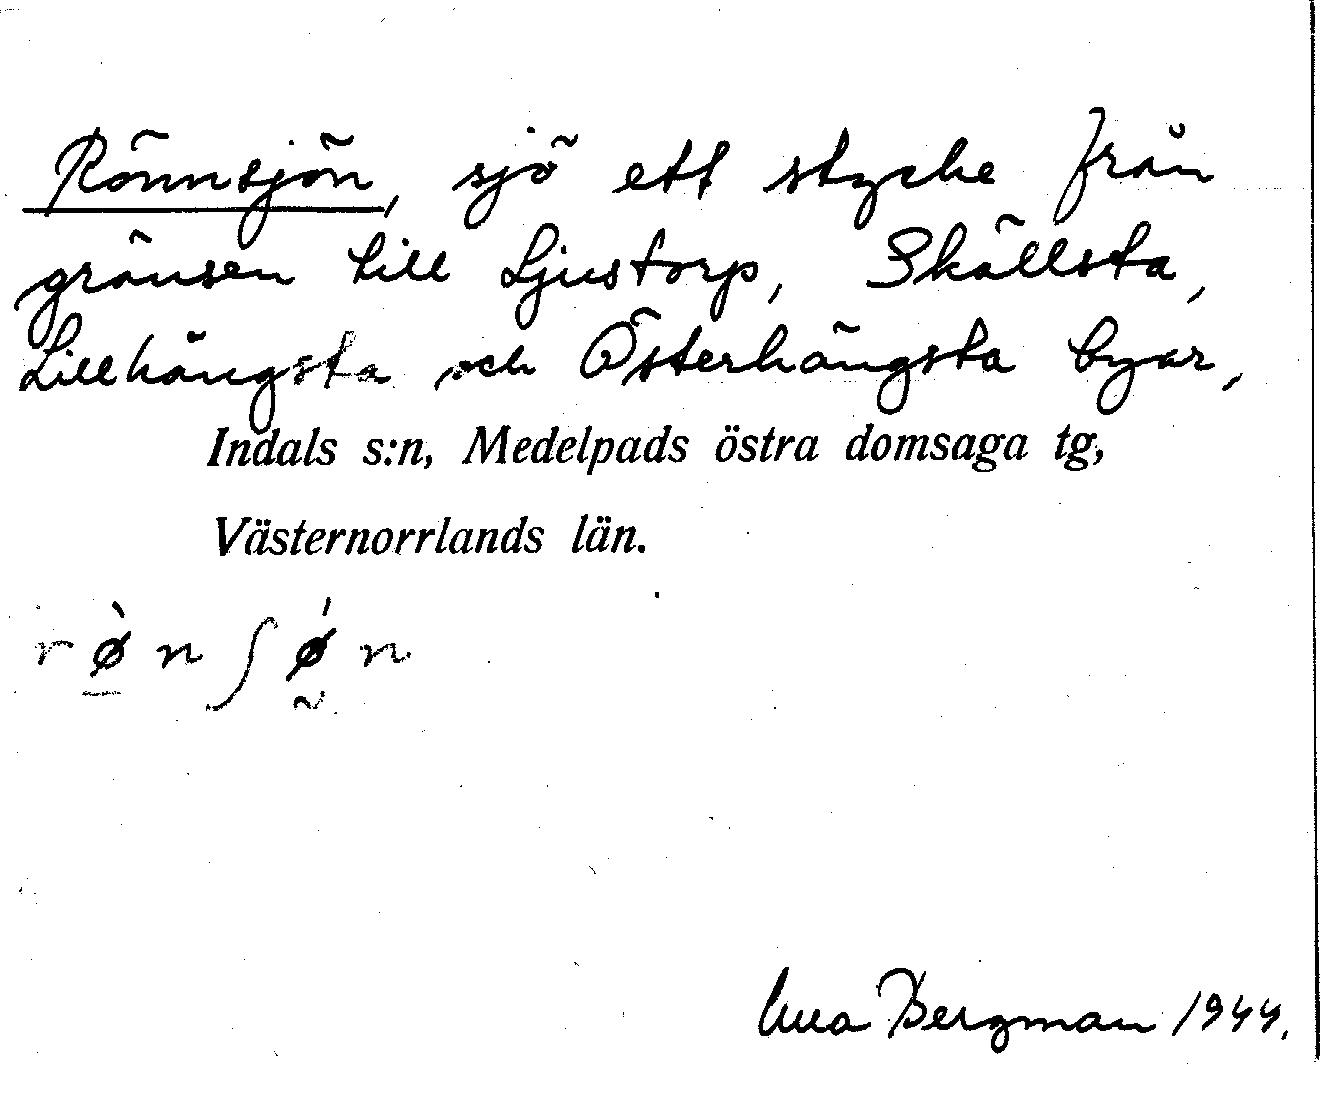 Rönnsjön, sjö ett stycke från
gränsen till Ljustorp, Skällsta,
Lillhängsta och Österhängsta byar,
Indals s:n, Medelpads östra domsaga tg,
Västernorrlands län.
rø̠̀nʃǿ̰n
Bergman 1944.